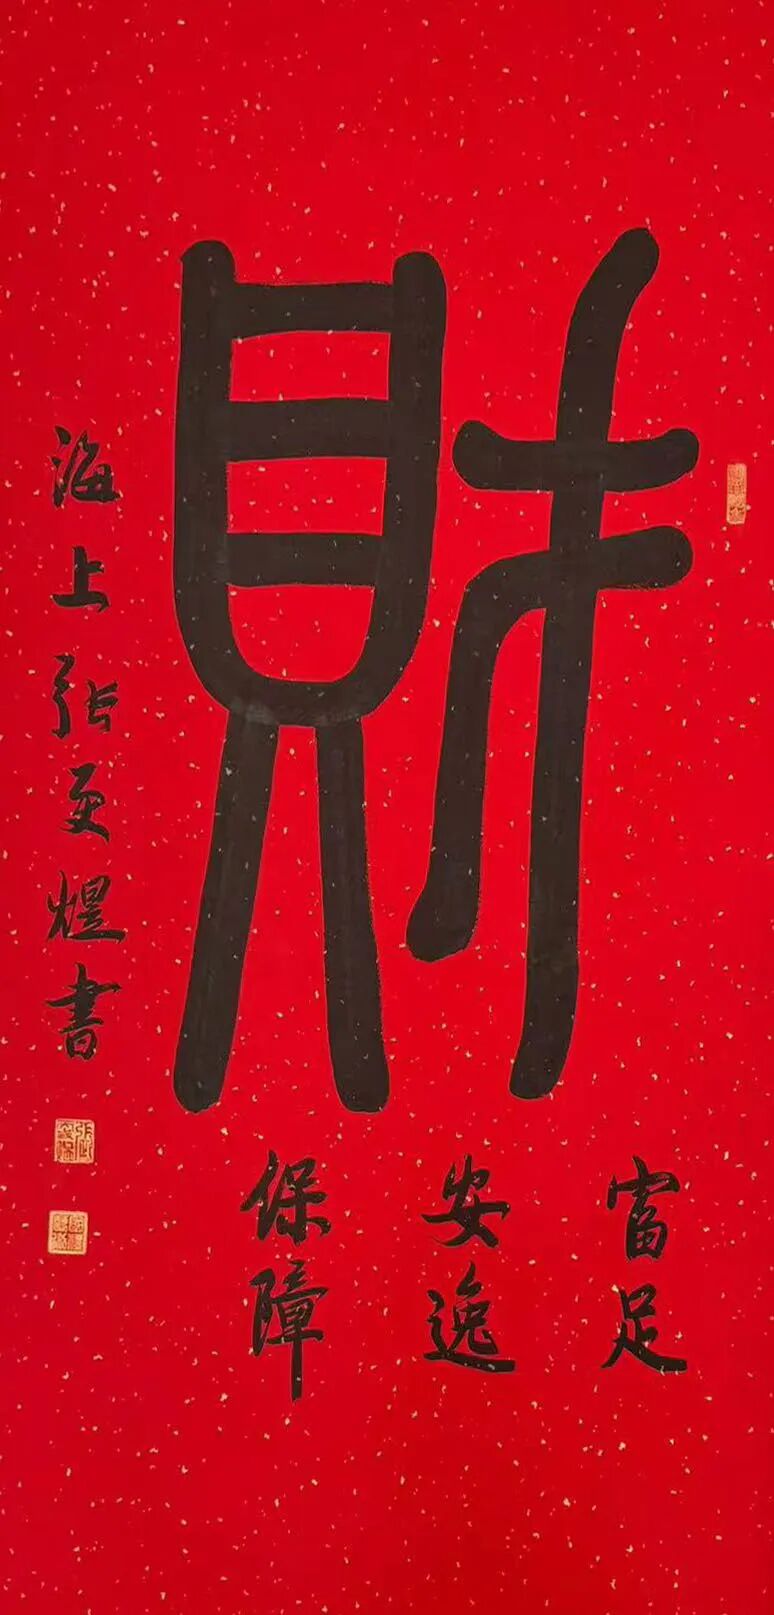 財
富足
安逸
保障
海上張更煜書